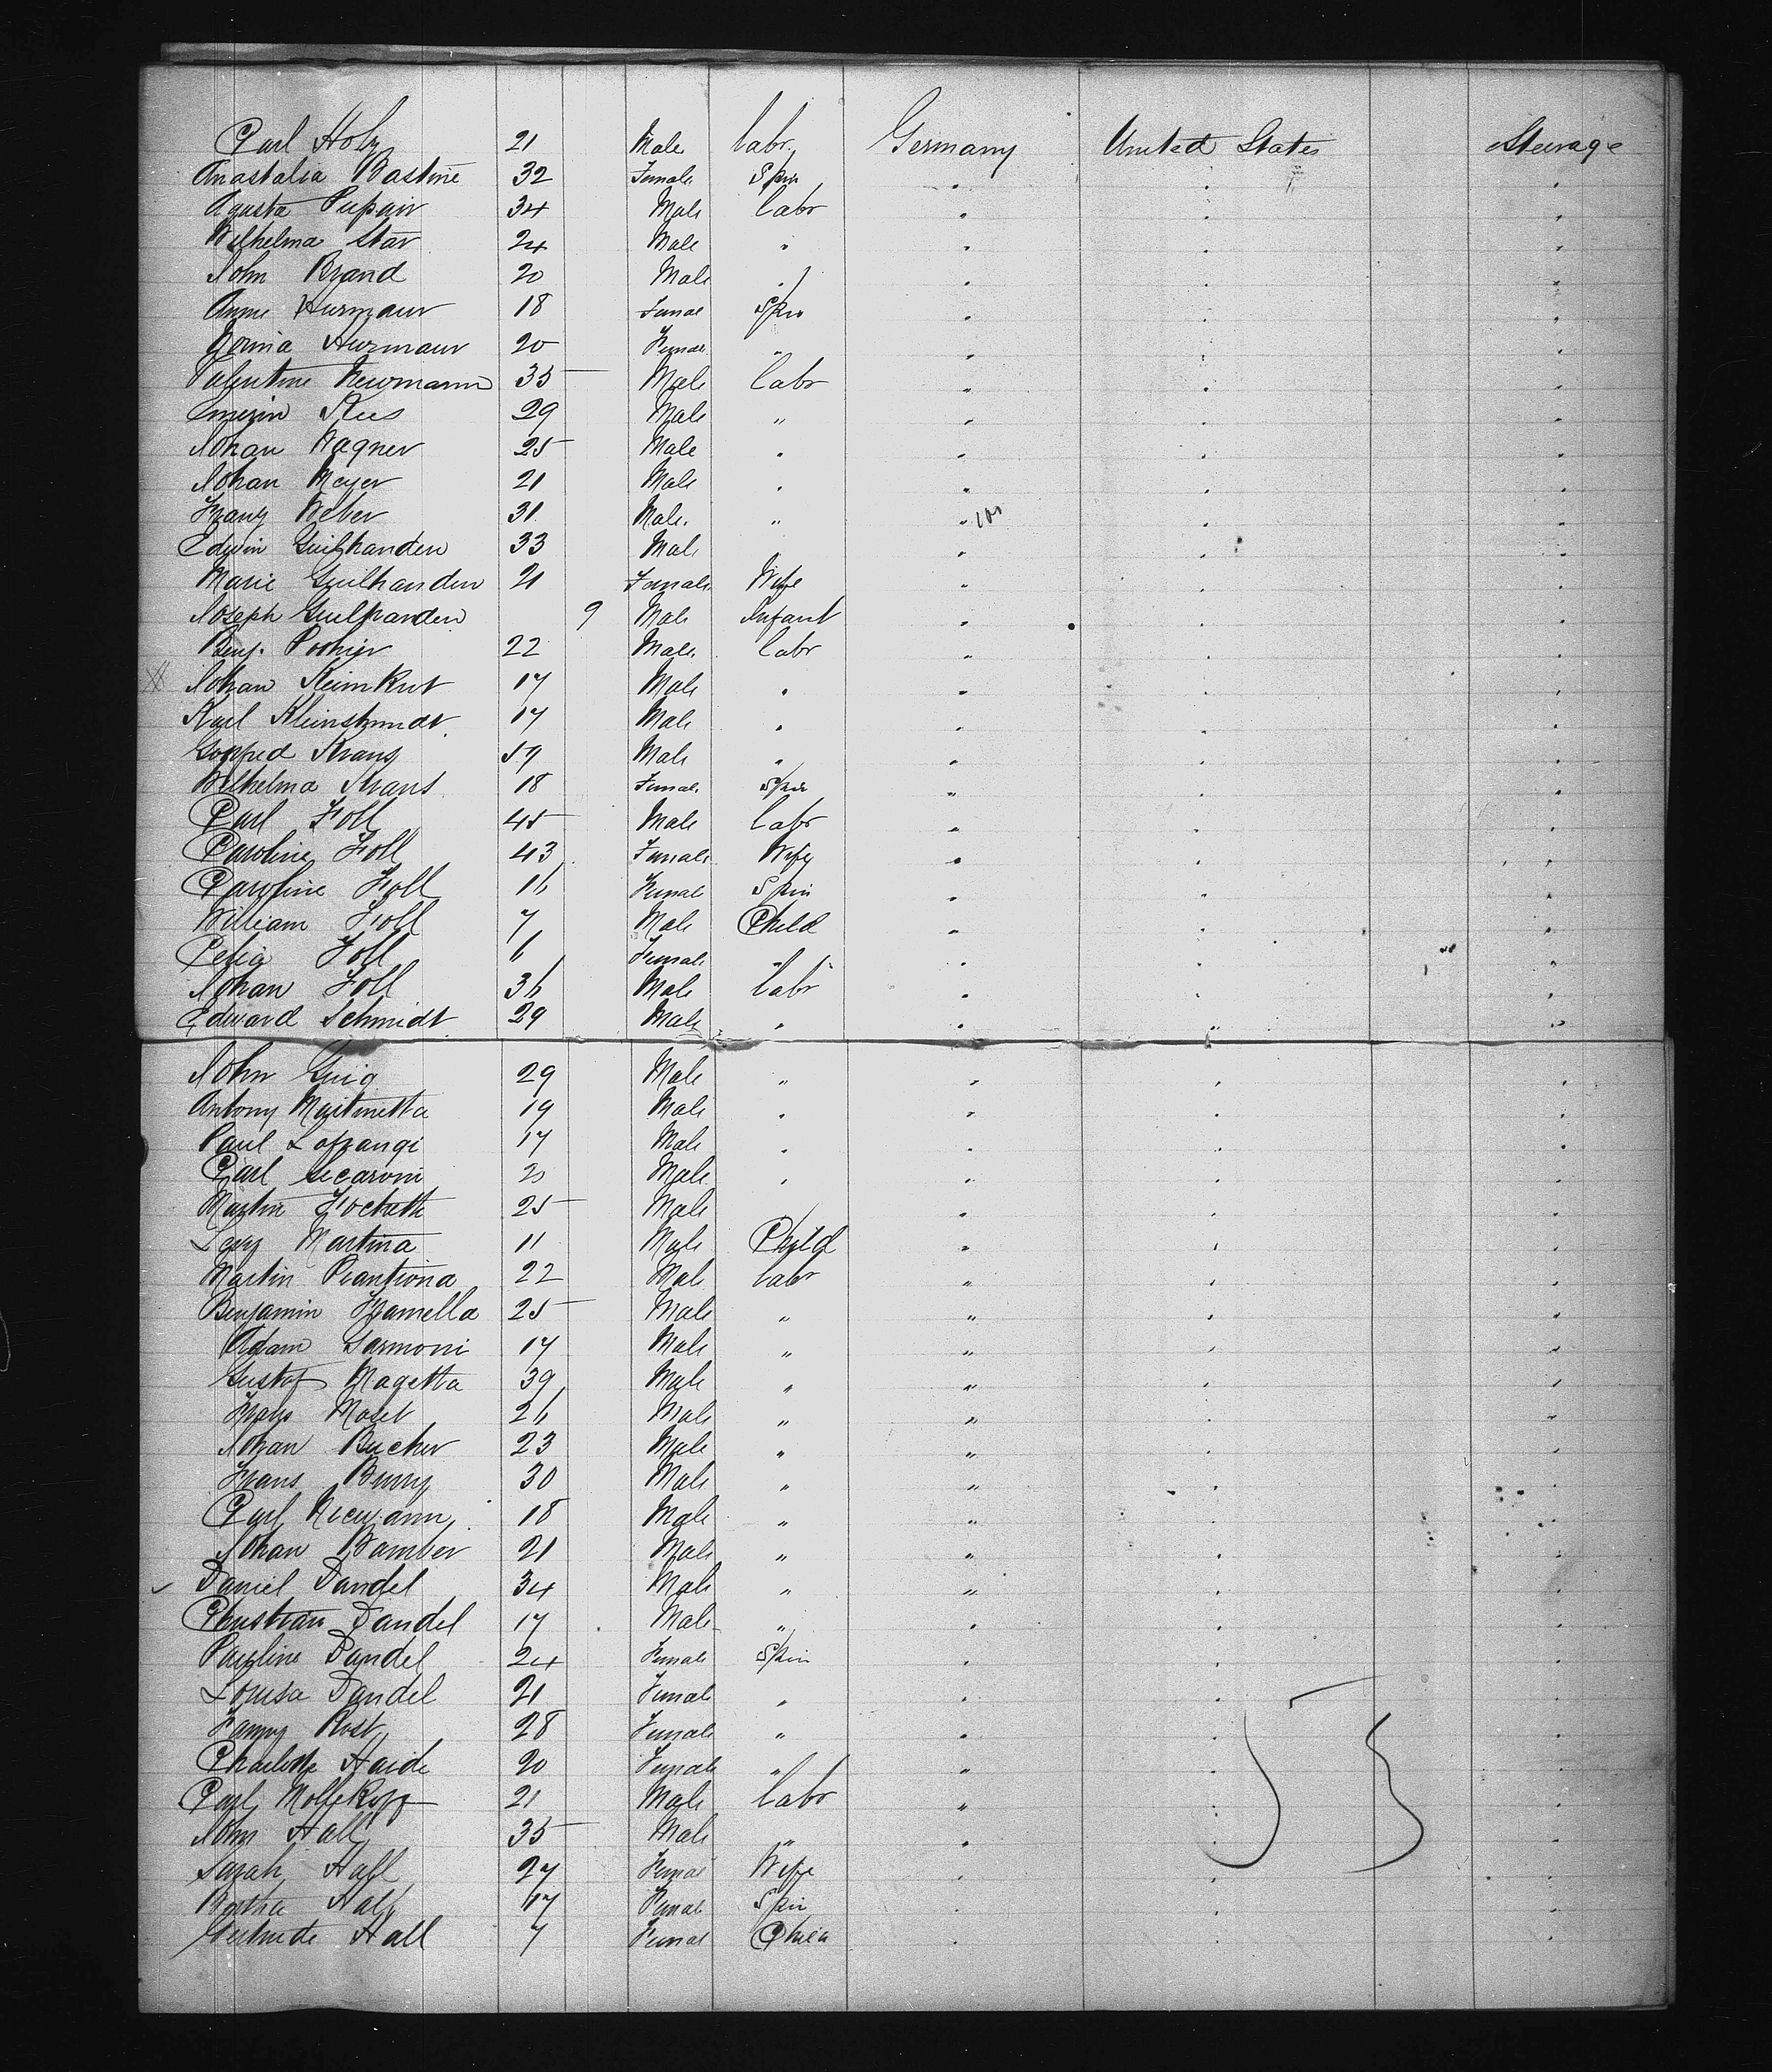 Carl Holz 21 Male Labr. Germany United States Steerage
Anastalia Bastine 32 Female Spin " " "
Agusta Pupair 34 Male Labr " " "
Wilhelma Star 24 Male " " " "
John Brand 20 Male " " " "
Anne Hurmaur 18 Femal Spin " " "
Hurmaur 20 Female " " " "
Valentine Newmann 35 Male Labr " " "
Kus 29 Male " " " "
Johan Wagner 25 Male " " " "
Johan Meyer 21 Male " " " "
Franz Weber 31 Male " " " "
Edwin Guilhanden 33 Male " " "
Marie Guilhanden 21 Female Wife " " "
Joseph Guilhanden 9 Male Infant " " "
Benj. Poohier 22 Male Labr " " "
Johan Steinkrut 17 Male " " " "
Karl Kleinshmidt 17 Male " " " "
Gotfried Krans 59 Male " " " "
Wilhelma Krans 18 Female Spin " " "
Carl Foll 45 Male Labr " " "
Caroline Foll 43 Female Wife " " "
Caroline Foll 16 Female Spin " " "
William Foll 7 Male Child " " "
Celia Foll 6 Female " " " "
Johan Foll 36 Male Labr " " "
Edward Schmidt 29 Male " " " "
John Guig 29 Male " " " "
Antony Martinetta 19 Male " " " "
Paul Lofrangi 17 Male " " " "
Carl Secaroni 20 Male " " " "
Martin 25 Male " " "
Martina 11 Male Child " " "
Martin Prantiona 22 Male Labr " " "
Benjamin Framella 25 Male " " " "
Adam Garmoni 17 Male " " " "
Gustof Magetta 39 Male " " " "
Frans Moset 26 Male " " " "
Johan Bucher 23 Male " " " "
Frans Burry 30 Male " " " "
Carl Niewann 18 Male " " " "
Johan Bamber 21 Male " " " "
Daniel Dandel 34 Male " " " "
Christian Dandel 17 Male " " " "
Pauline Dandel 24 Female Spin " " "
Louisa Dandel 21 Female " " " "
Fanny Rost 28 Female " " " "
Charlotte Haide 20 Female " " " "
Carl Mollekopf 21 Male Labr " " "
John Hall 35 Male " " " "
Sarah Hall 27 Femal Wife " " "
Bertha Hall 17 Femal Spin " " "
Gertrude Hall 7 Femal Child " " "
53